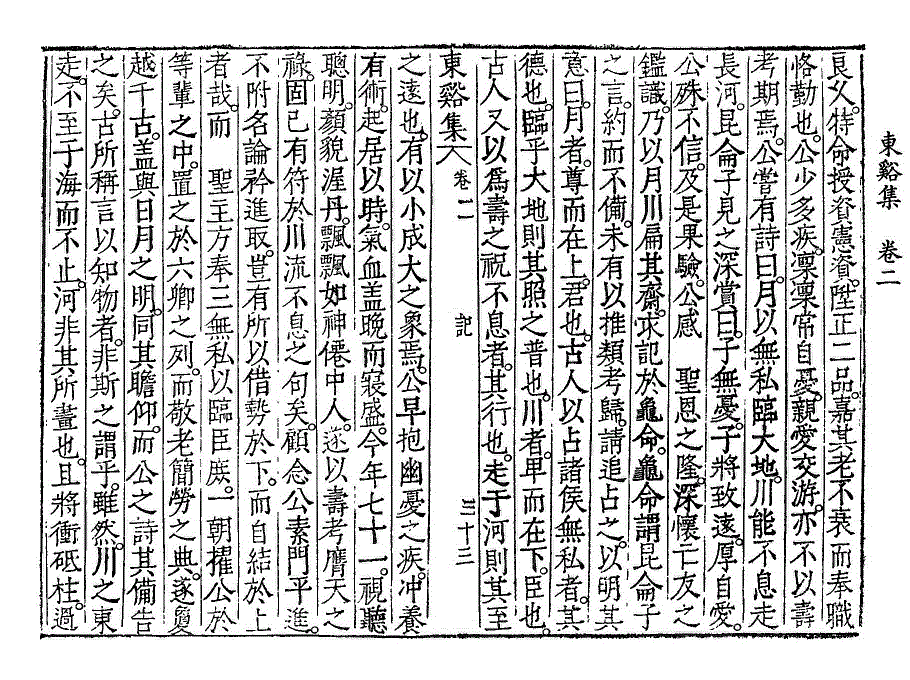 東谿集　卷二
良久。特命授資憲資。陞正二品。嘉其老不衰而奉職
恪勤也。公少多疾。凛凛常自憂。親愛交游。亦不以壽
考期焉。公嘗有詩曰。月以無私臨大地。川能不息走
長河。昆侖子見之深賞曰。子無憂。子將致遠。厚自愛。
公殊不信。及是果驗。公感　聖恩之隆。深懷亡友之
鑑識。乃以月川扁其齋。求記於龜命。龜命謂昆侖子
之言。約而不備。未有以推類考歸。請追占之。以明其
意曰。月者。尊而在上。君也。古人以占諸侯無私者。其
德也。臨乎大地則其照之普也。川者。卑而在下。臣也。
古人又以爲壽之祝不息者。其行也。走于河則其至
東谿集　卷二　記　三十三
之遠也。有以小成大之象焉。公早抱幽憂之疾。冲養
有術。起居以時。氣血盖晩而寢盛。今年七十一。視聽
聰明。顏貌渥丹。飄飄如神僊中人。遂以壽考膺天之
祿。固已有符於川流不息之句矣。顧念公素門平進。
不附名論矜進取。豈有所以借勢於下。而自結於上
者哉。而　聖主方奉三無私以臨臣庶。一朝擢公於
等輩之中。置之於六卿之列。而敬老簡勞之典。遂敻
越千古。盖與日月之明。同其瞻仰。而公之詩其備告
之矣。古所稱言以知物者。非斯之謂乎。雖然。川之東
走。不至于海而不止。河非其所畫也。且將衝砥柱。過